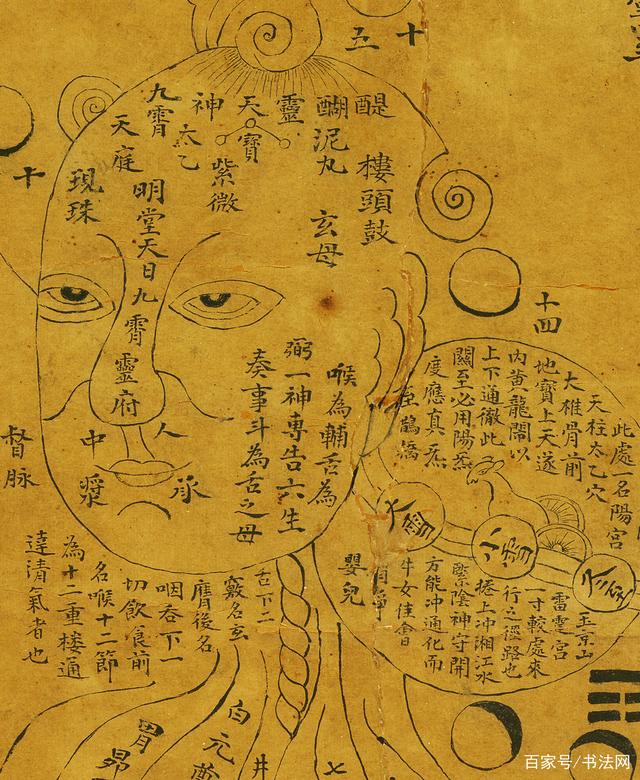 十五
醍醐
泥丸
靈
天寶
神
太乙
九霄
天庭
紫微
樓頭鼓
玄母
現珠
明堂天日九霄靈府
十
十四
人中
承漿
督脉
喉為輔舌為
弼一神專告六生
奏事斗為舌之母
此處名陽宮
天柱太乙穴
大椎骨前
地寶上天遂
内黄龍閣以
上下通徹此
關至必用陽炁
度應真炁
至鵲橋
大雪
小雪
玉京山
雷霆宮
一寸較處來
行之徑路也
捲上冲湘江水
繫陰神守開
方能冲通化而
牛女佳會
嬰兒
舌下二
竅名玄
膺後名
咽吞下一
切飲食前
名喉十二節
為十二重楼通
達清氣者也
胃
昴
白元
井
七
百家号/书法网